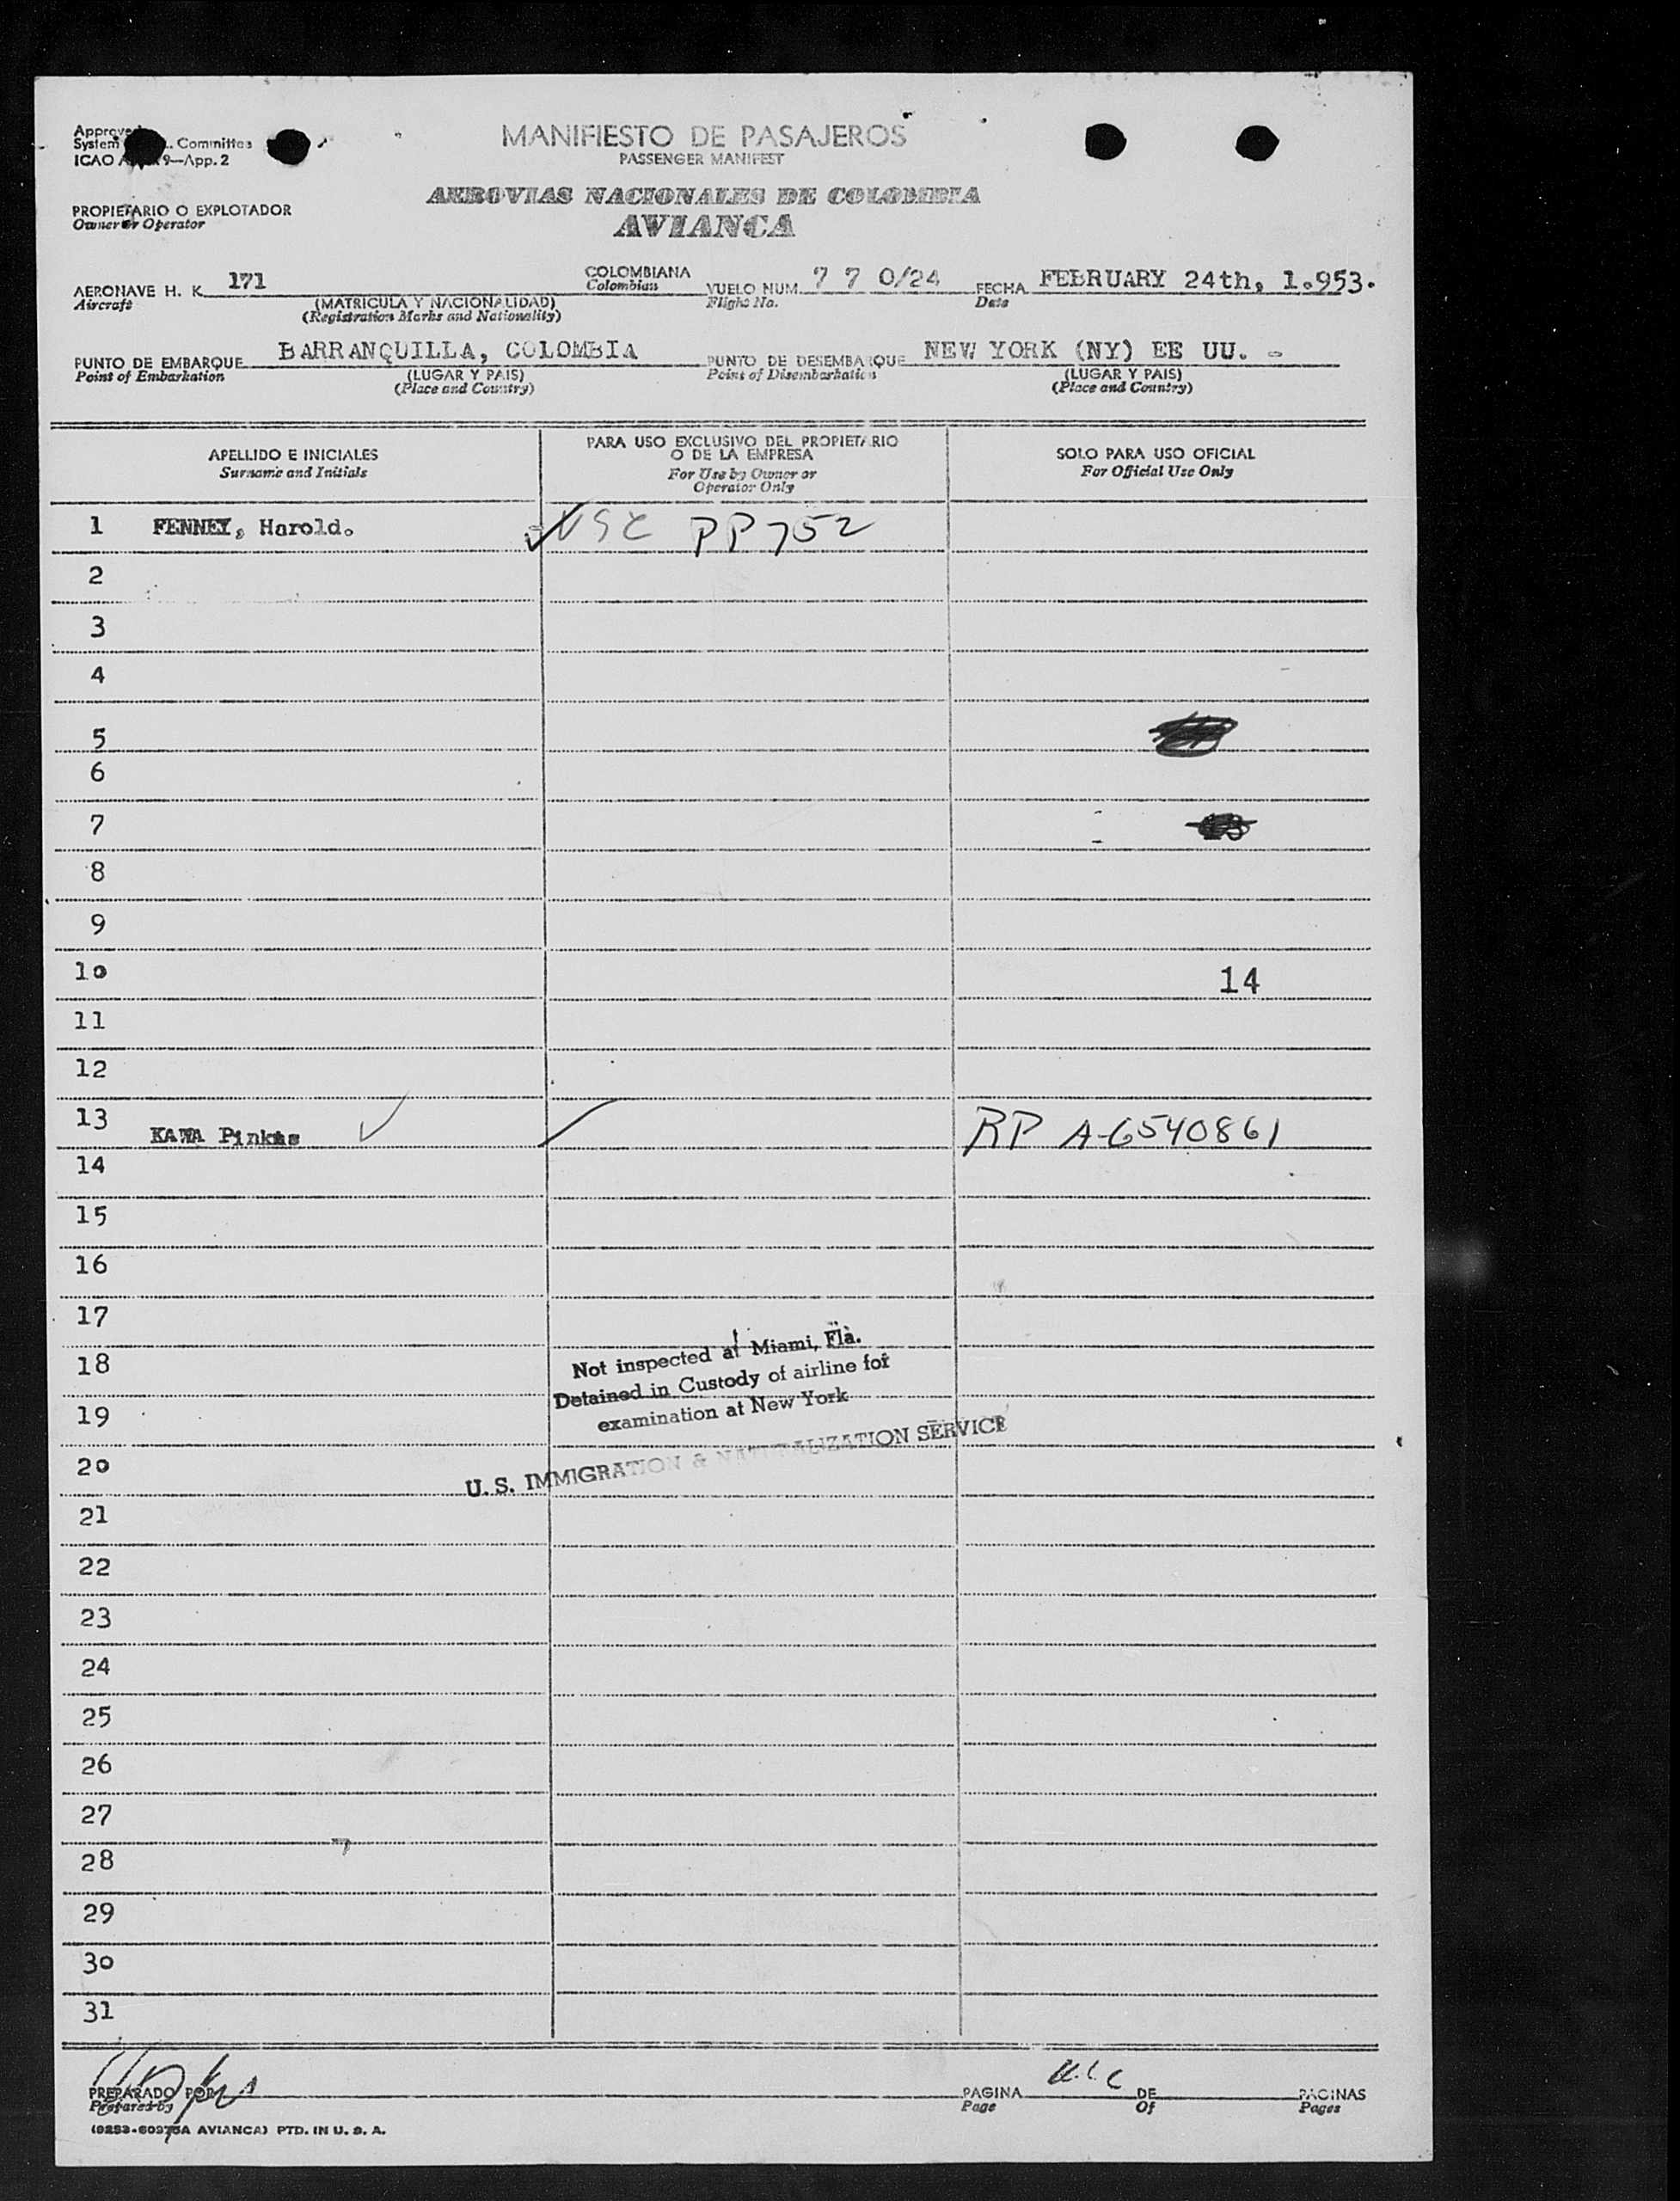 MANIFIESTO DE PASAJEROS
PASSENGER MANIFEST
System Committee
ICAO 9—App. 2
AEROVIAS NACIONALES DE COLOMBIA
AVIANCA
PROPIETARIO O EXPLOTADOR
Owner or Operator
AERONAVE H. K. 171 COLOMBIANA VUELO NUM. 7 7 0/24 FECHA FEBRUARY 24th, 1.953.
Aircraft (MATRICULA Y NACIONALIDAD) Colombian Flight No. Date
(Registration Marks and Nationality)
PUNTO DE EMBARQUE BARRANQUILLA, COLOMBIA PUNTO DE DESEMBARQUE NEW YORK (NY) EE UU. -
Point of Embarkation (LUGAR Y PAIS) Point of Disembarkation (LUGAR Y PAIS)
(Place and Country) (Place and Country)
APELLIDO E INICIALES
Surname and Initials
PARA USO EXCLUSIVO DEL PROPIETARIO
O DE LA EMPRESA
For Use by Owner or
Operator Only
SOLO PARA USO OFICIAL
For Official Use Only
1 FENNEY, Harold. USC PP 752
2
3
4
5
6
7
8
9
10 14
11
12
13 KAWA Pinkas RP A-6540861
14
15
16
17
18
19
20
21
22
23
24
25
26
27
28
29
30
31
Not inspected at Miami, Fla.
Detained in Custody of airline for
examination at New York
U. S. IMMIGRATION & NATURALIZATION SERVICE
PREPARADO POR PAGINA DE PAGINAS
Prepared by Page Of Pages
AVIANCA) PTD. IN U. S. A.